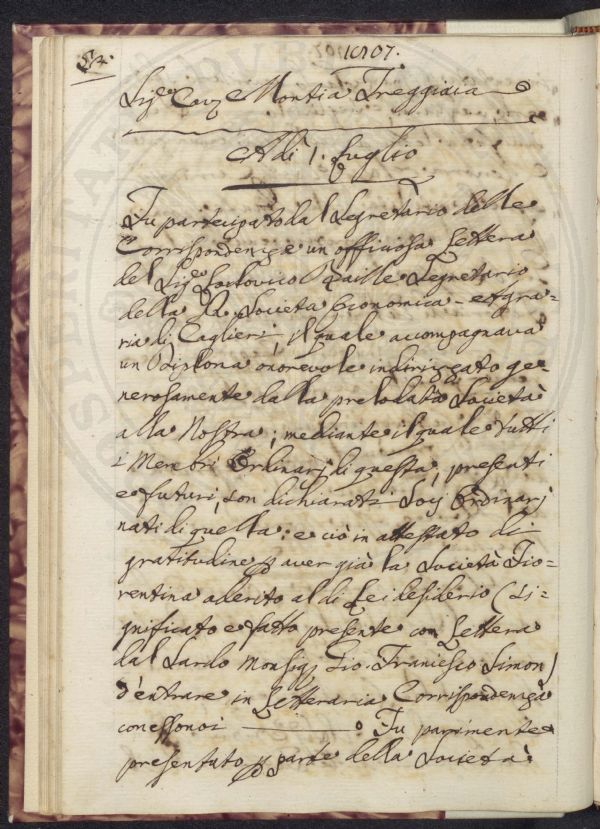 1807.
Sig.r Cav.e Montia Treggiaia
Adi 1. Luglio
Fu partecipato dal Segretario delle
Corrispondenze un officiosa Lettera
del Sig.e Lodovico Baille Segretario
della R. Società Economica - e Agra-
ria di Caglieri, il quale accompagnava
un Diploma onorevole indirizzato ge-
nerosamente dalla prelodata Società
alla Nostra; mediante il quale tutti
i Membri Ordinarj di questa, presenti
e futuri, son dichiarati Socj Ordinarj
nati di quella: e ciò in attestato di
gratitudine p aver già la Società Fio-
rentina aderito al di Lei desiderio (si-
gnificato e fatto presente con Lettera
dal Sardo Monsig. Gio. Francesco Simon)
d'entrare in Letteraria Corrispondenza
con essonoi ——— Fu parimente
presentato p parte della Società